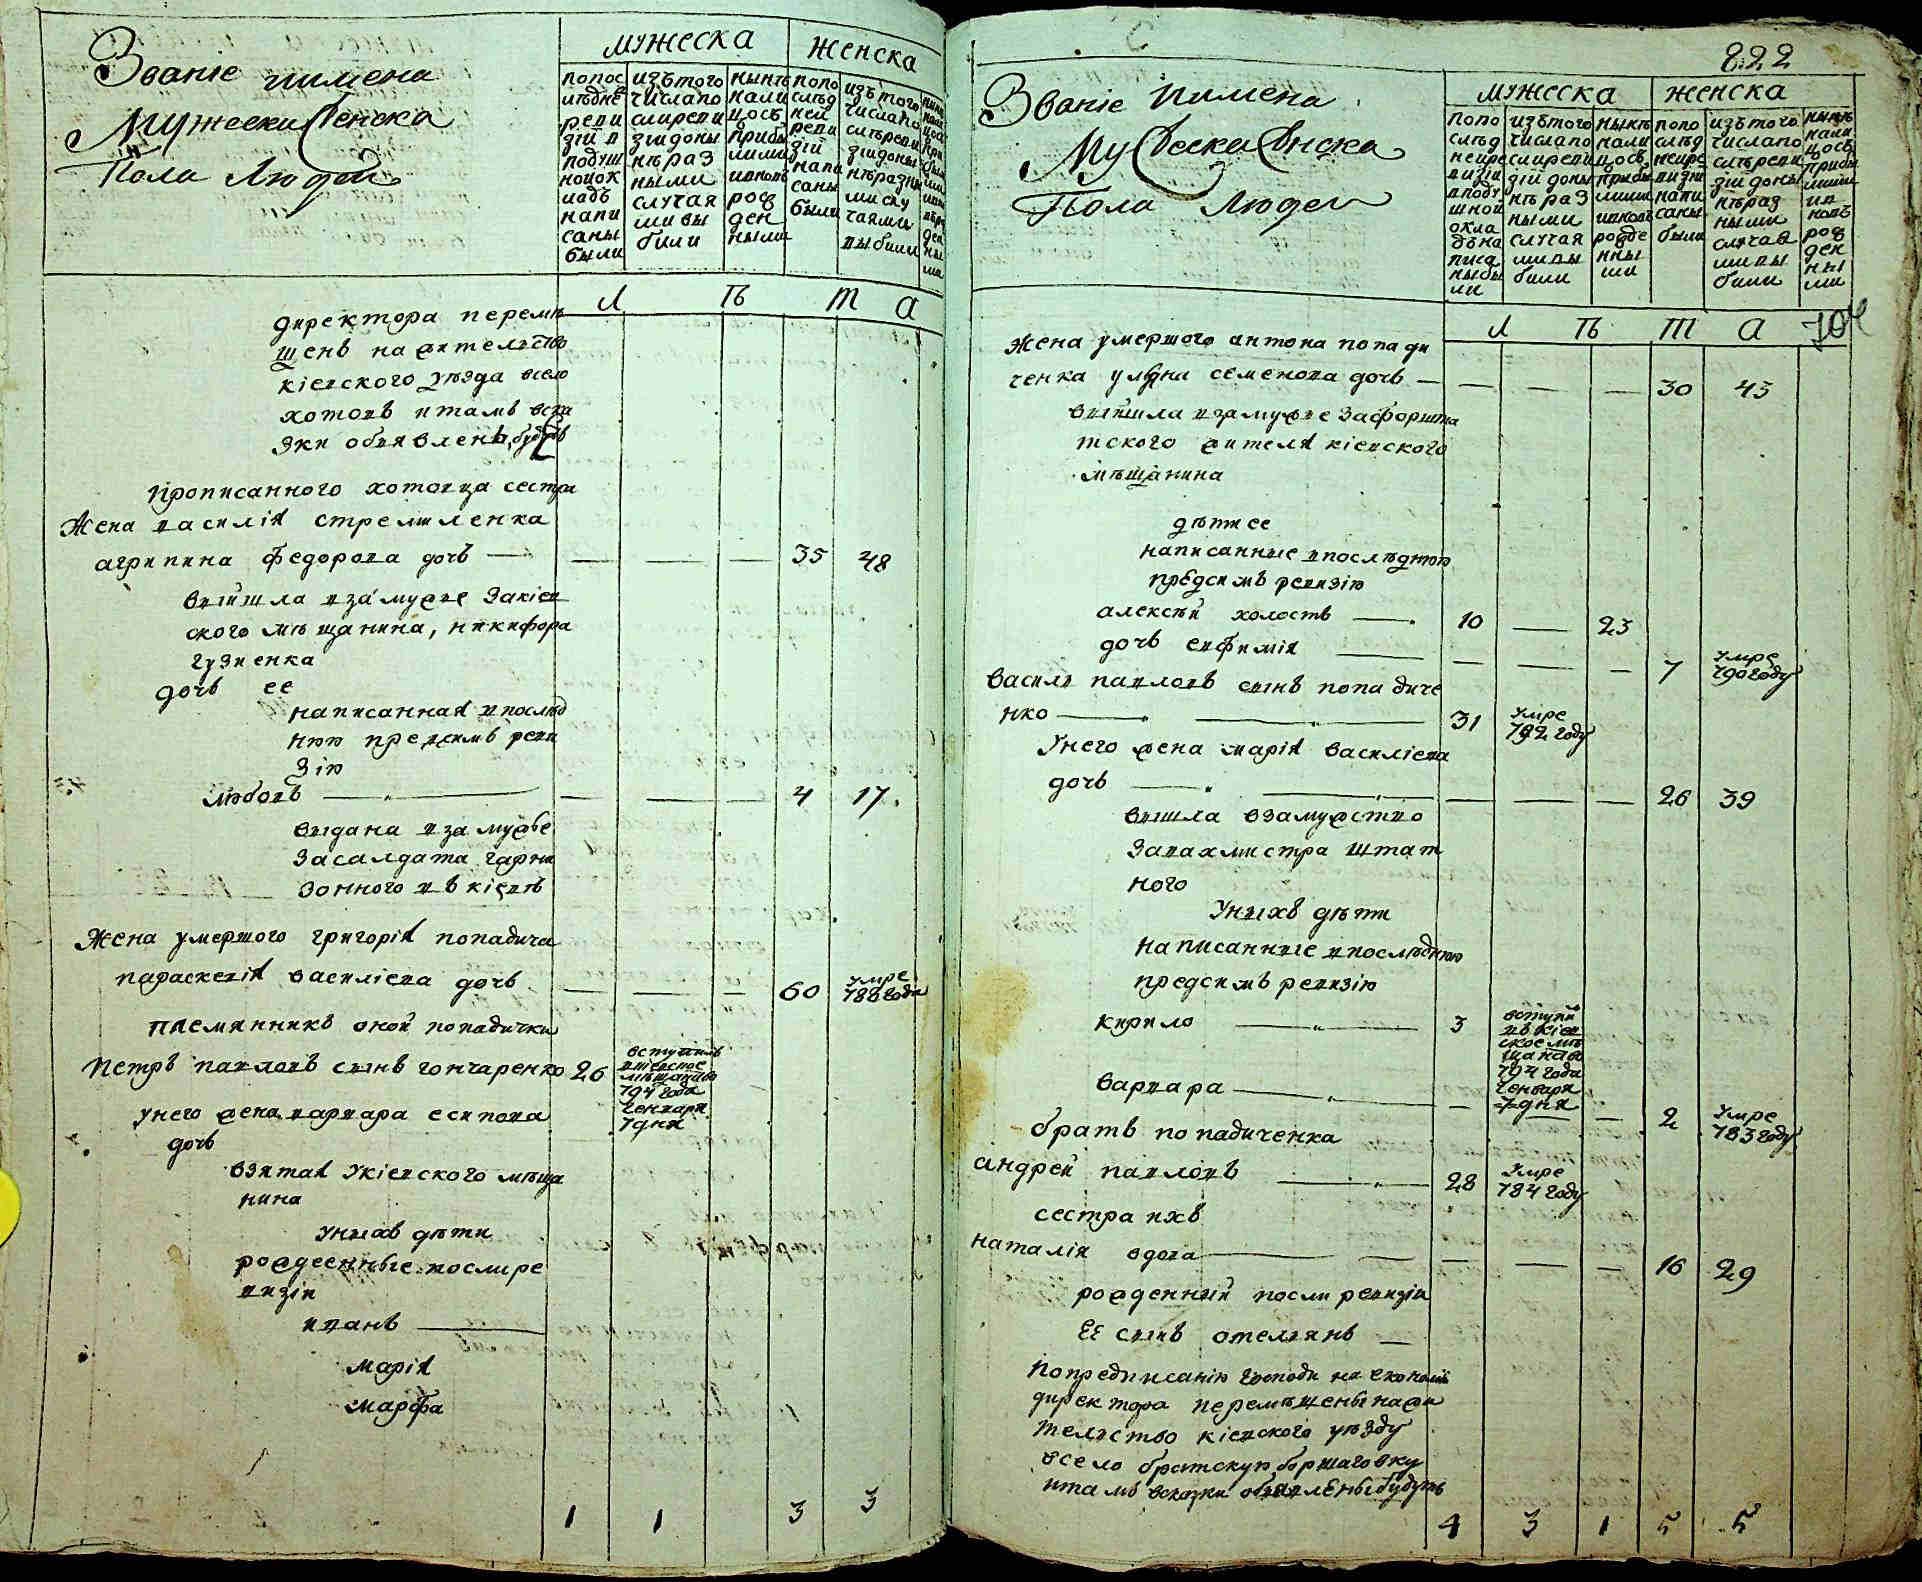 Званіе имена
Мужеска женска
Пола Людей
мужеска
женска
попос
лѣдне
реви
зіи в
подуш
ной ок
ладъ
напи
саны
были
изътого
числапо
слиреви
зіидоны
нѣраз
ными
случая
ми вы
были
нынѣ
нали
цосъ
прибы
лими
ивновь
рож
ден
ными
попо
слѣд
ней
реви
зіи
напи
саны
были
изътого
числапо
слѣреви
зіидоны
нѣразны
ми слу
чаями
выбили
л ѣ т а
директора перемѣ
щенъ на жителство
кіевского уѣзда всело
хотовъ итамъ вска
зки обьявленъ будетъ
прописанного хотовца сестра
Жена василія стрелиленка
агрипина федорова дочь — — — — 35 48
вышла взамужье закіев
ского мѣщанина, никифора
гузненка
дочь ее
написанная впослѣд
нюю предсимъ реви
зію
любовь — — — — 4 17.
выдана взамужье
засалдата гарни
зонного въ кіевѣ
Жена умершого григорія попадича
параскевія василіева дочь — — — 60 умре 788 года
племянникъ оной попадички
Петръ павловъ сынъ гончаренко 26 вступилъ
вкіевское
мѣщанство
794 года
генваря
7 дня
унего жена варвара есипова
дочь
взятая укіевского мѣща
нина
унихъ дѣти
рожденные послире
визіи
иванъ —
марія
марфа
1 1 3 3
822
Званіе имена
Мужеска женска
Пола Людей
мужеска
женска
попо
слѣд
нейре
визіи
вподу
шной
окла
дъна
писа
ныбы
ли
изътого
числапо
слиреви
зіи доны
нѣраз
ными
случая
ми вы
были
нынѣ
нали
цосъ
прибы
лими
ивновь
рожде
нны
ми
попо
слѣд
нейре
визіи
напи
саны
были
изътого
числапо
слѣреви
зіи доны
нѣраз
ными
случая
ми вы
были
нынѣ
нали
цосъ
прибы
лими
ив
новь
рож
ден
ны
ми
л ѣ т а
жена умершого антона попади
ченка улияни семенова дочь — — — — 30 43
вышла взамужье зафоршта
тского жителя кіевского
мѣщанина
дѣти ее
написанные впослѣднюю
предсимъ ревизію
алексѣй холостъ — 10 — 23
дочь евфимія — — — — 7 умре 790 году
василь павловъ сынъ попадиче
нко — 31 умре 792 году
Унего жена марія василіева
дочь — — — — 26 39
вышла взамужство
завахмистра штат
ного
Унихъ дѣти
написанные впослѣднюю
предсимъ ревизію
кирило — 3 вступи
въ кіев
ское мѣ
щанство
794 года
генваря
7 дня
варвара — — — 2 умре 783 году
братъ попадиченка
андрей павловъ — 28 умре 784 году
сестра ихъ
наталія вдова — — — — 16 29
рожденный посли ревизіи
ее сынъ омелянъ —
попредписанію господина економіи
директора перемѣщены нажи
телство кіевского уѣзду
всело братскую борщаговку
итамъ всказки обьявлены будутъ
4 3 1 5 5